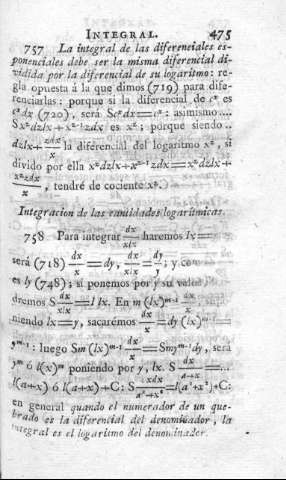 INTEGRAL. 475
757 La integral de las diferenciales es-
ponenciales debe ser la misma diferencial di-
vidida por la diferencial de su logaritmo: re-
gla opuesta á la que dimos (719) para dife-
renciarlas: porque si la diferencial de cˣ es
cˣdx (720), será Scˣdx=cˣ: asimismo....
Sxᶻdzlx+xᶻ⁻¹zdx es xᶻ; porque siendo..
dzlx+zdx/x la diferencial del logaritmo xᶻ, si
divido por ella xᶻdzlx+xᶻ⁻¹zdx=xᶻdzlx+
xᶻzdx/x, tendré de cociente xᶻ.
Integracion de las cantidades logarítmicas.
758 Para integrar dx/xlx haremos lx=
será (718) dx/x=dy, dx/xlx=dy/y; y co
es ly (748); si ponemos por y su valor
dremos S dx/xlx=l lx. En m (lx)ᵐ⁻¹ dx/x
niendo lx=y, sacarémos dx/x=dy (lx)ᵐ⁻¹=
yᵐ⁻¹: luego Sm (lx)ᵐ⁻¹ dx/x=Smyᵐ⁻¹dy, será
yᵐ ó l(x)ᵐ poniendo por y, lx. S dx/a+x=...
l(a+x) ó l(a+x)+C: S xdx/a²+x²=l(a²+x²)+C:
en general quando el numerador de un que-
brado es la diferencial del denominador, la
integral es el logaritmo del denominador.